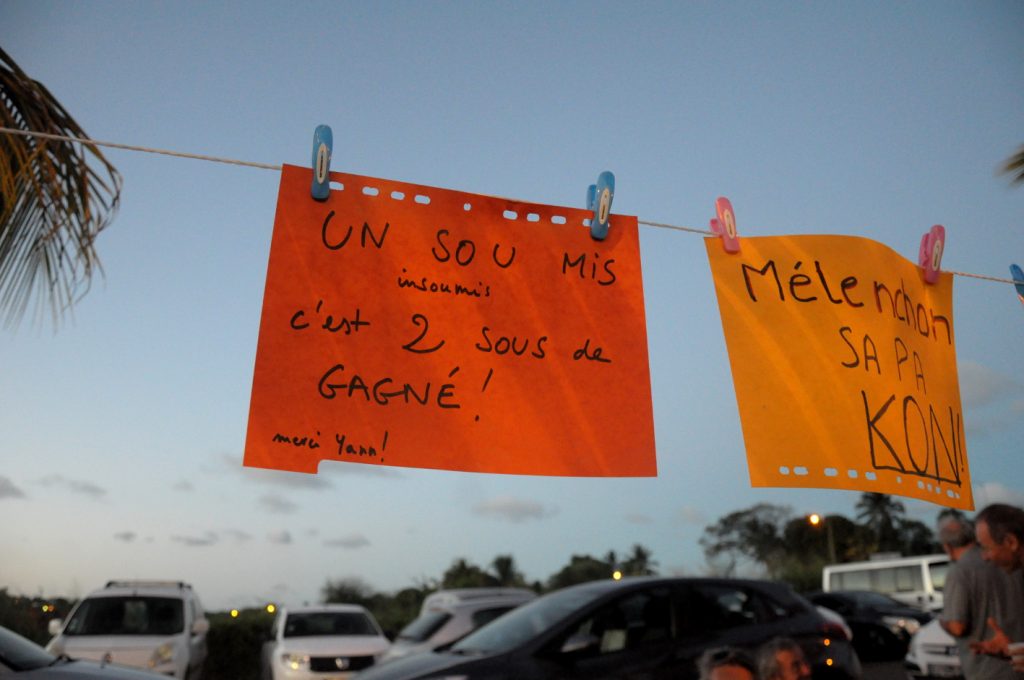 UN SOU MIS
insoumis
c'est 2 sous de
GAGNÉ!
merci Yann!
Mélenchon
SA PA
KON!